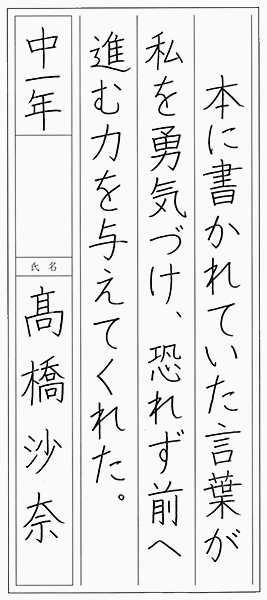 本に書かれていた言葉が
私を勇気づけ、恐れず前へ
進む力を与えてくれた。
中一年
氏名
髙橋沙奈